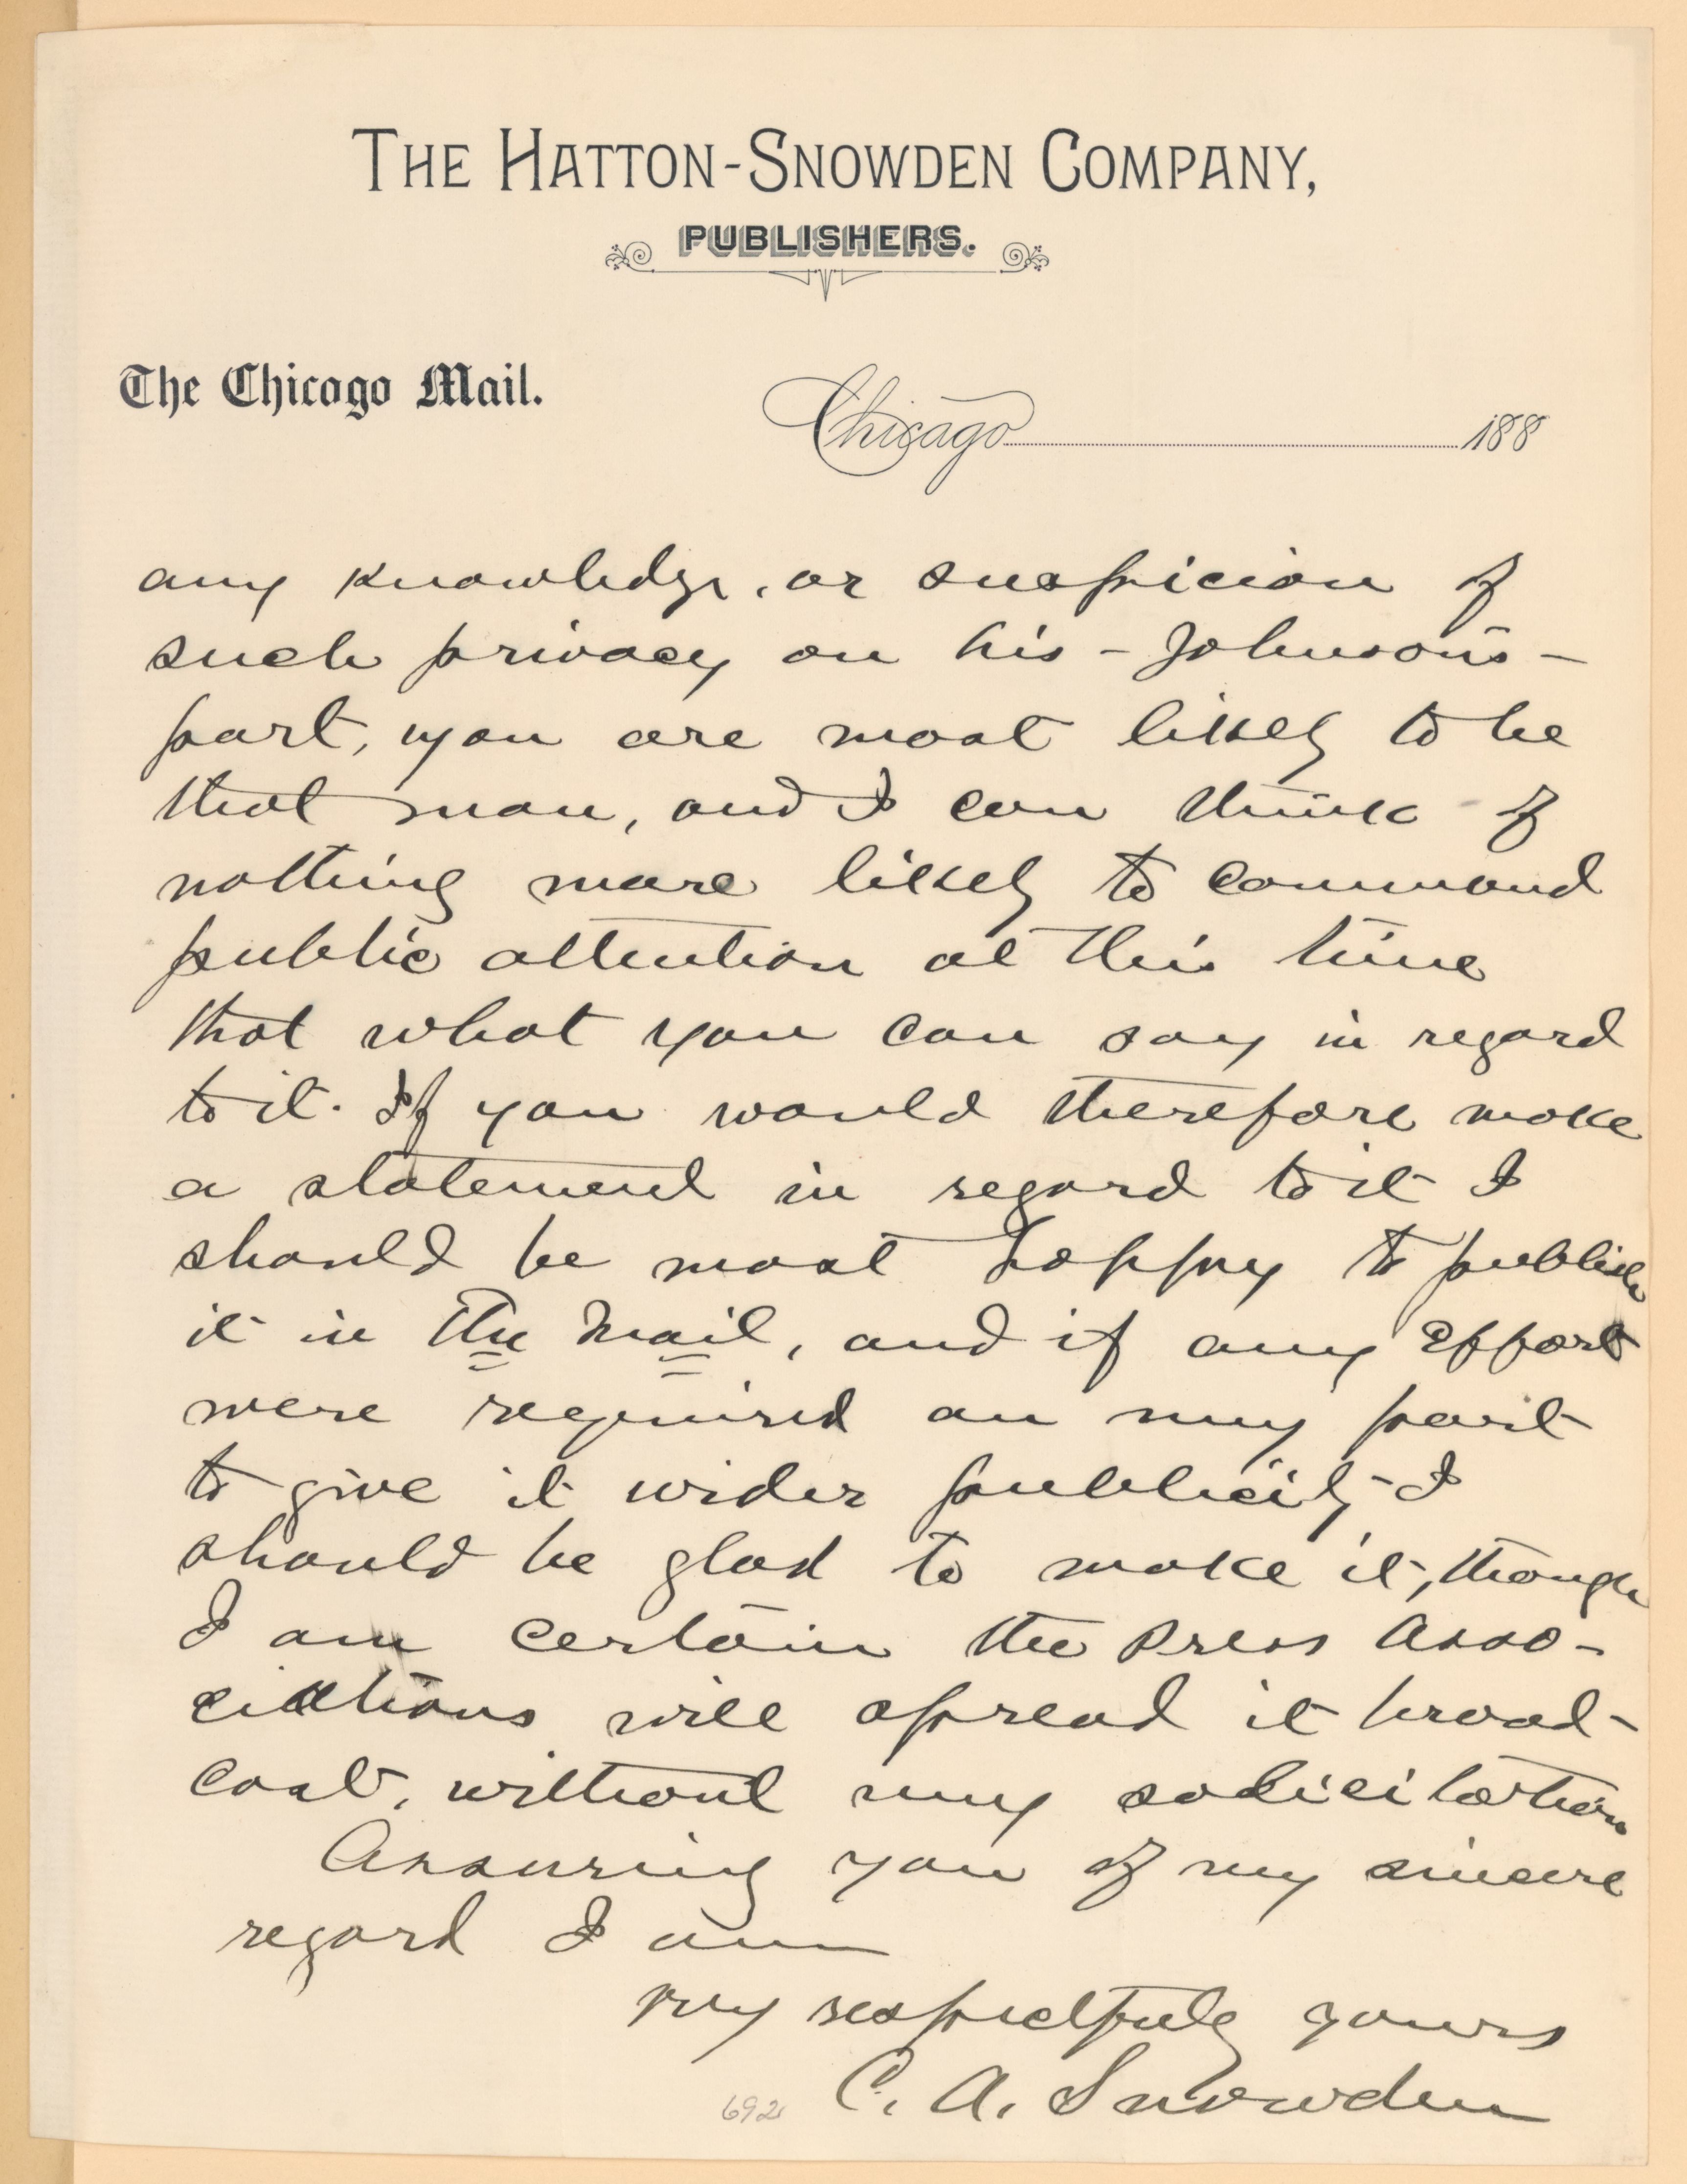 THE HATTON-SNOWDEN COMPANY,
PUBLISHERS.
The Chicago Mail.
Chicago 188
any knowledge, or suspicion of
such privacy on his - Johnson's -
part, you are most likely to be
that man, and I can think of
nothing more likely to command
public attention at this time
that what you can say in regard
to it. If you would therefore make
a statement in regard to it I
should be most happy to publish
it in The Mail, and if any effort
were required on my part
to give it wider publicity I
should be glad to make it, though
I am certain the Press Asso-
ciations will spread it broad-
cast, without my solicitation
Assuring you of my sincere
regard I am
Very respectfully yours
C. A. Snowden
692